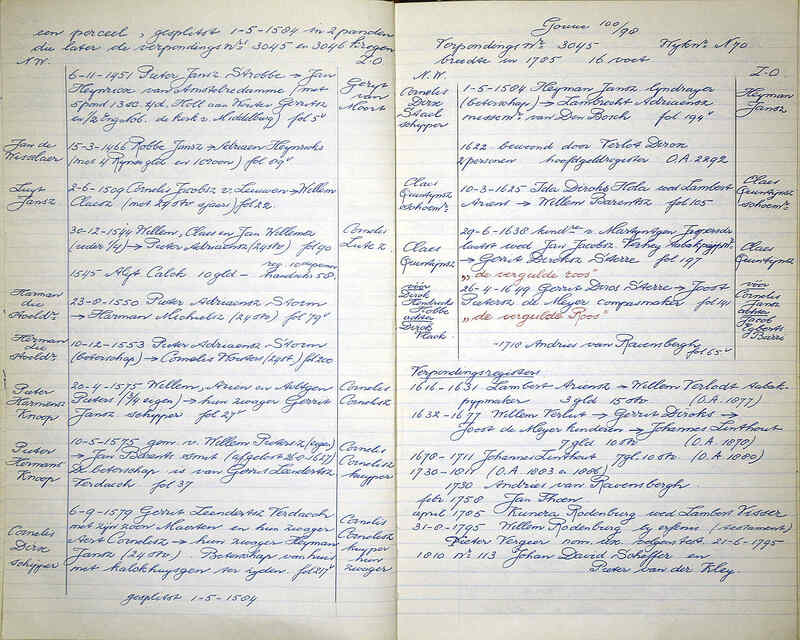 een perceel, gesplitst 1-5-1584 in 2 panden
die later de verpondings Nrs 3045 en 3046 kregen
N.W. Z.O
6-11-1451 Pieter Jansz Strobbe → Jan
Heynricx van Amstelredamme (met
van
fol 5v
Jan de
15-3-1466 Robbe Jansz → Adriaen Heynricks
(met 4 Rynsgld en 10 roon) fol
Luyt
Jansz
2-6-1509 Cornelis Jacobsz v. Leeuwen → Willem
Claesz (met 24 stv sjaers) fol 22.
30-12-1544 Willem, Claes en Jan Willemsz
(ieder 1/4) → Pieter Adriaensz (24 stv) fol 90
Cornelis
1545 Alyt Calck 10 gld – 58.
Harman
die
23-8-1550 Pieter Adriaensz Storm
→ Harman Michielsz (24 stv) fol 79v
Herman
10-12-1553 Pieter Adriaensz Storm
(beterschap) → Cornelis Woutersz (24 st) fol 200
Pieter
Harmensz
Knoop
20-4-1575 Willem, Arien en Aeltgen
Pieters (3/4 eigen) → hun zwager Gerrit
Jansz schipper fol 27v
Cornelis
Cornelisz
Pieter
Hermans
Knoop
10-5-1575 gem. v. Willem Pietersz
→ Jan Barents smet (afgelost 26-8-1617)
De beterschap is van Gerrit Leendertsz
Verdoech fol 37
Cornelis
Cornelisz
kuyper
Cornelis
Dirx
schipper
6-9-1579 Gerrit Leendertsz Verdoech
met zijn zoon Maerten en hun zwager
Aert Cornelisz → hun zwager Heyman
Jansz (24 stv) Beterschap van huis
met kalckhuysgen ter zyden. fol 217v
Cornelis
Cornelisz
kuyper
hun
zwager
gesplitst 1-5-1584
Gouwe 100/98
Verpondings Nr. 3045 Wyk Nr. N 70
breedte in 1785 16 voet
N.W. Z.O
Cornelis
Dirx
schipper
1-5-1584 Heyman Jansz lyndrayer
(beterschap) → Lambrecht Adriaensz
messemr. van Den Bosch fol 194v
Heyman
Jansz
1622 bewoond door Verlot Dirox
2 personen hoofdgeldregister O.A. 2292
Claes
Quirynsz
schoemr.
10-3-1625 Ida Dircks Hola wed Lambert
Ariens → Willem Barentsz fol 105
Claes
Quirynsz
schoemr.
Claes
Quirynsz
29-6-1638 kindn v. Martyntgen Jaspersdr
laatst wed Jan Jacobsz Verhey tabakpypmr.
→ Gerrit Dircksz Sterre fol 197
Claes
Quirynsz
„de vergulde roos"
vóór
Dirck
Hendricks
achter
Dirck
26-4-1649 Gerrit Dircs Sterre → Joost
Pietersz de Meyer compasmaker fol 141
„de vergulde Roos"
vóór
Cornelis
Jansz
achter
Jacob
Egberts
-1710 Andries van Ravensbergh
fol 65v
Verpondingsregisters
1616-1631 Lambert Ariensz → Willem Verlodt tabak-
pypmaker 3 gld 15 stv (O.A. 1877)
1632-1677 Willem Verlut → Gerrit Dircks →
Joost de Meyer kinderen → Johannes Linthout
7 gld 10 stv (O.A. 1878)
1678-1711 Johannes Linthout 7 gl. 10 stv. (O.A. 1880)
1730-1811 (O.A. 1883 en 1886)
1730 Andries van Ravensbergh.
febr 1758 Jan Thoen
april 1785 Kunera Rodenburg wed Lambert Visser
31-8-1795 Willem Rodenburg by erfenis (testament)
Pieter Vergeer nom. ux volgens test. 21-6-1795
1810 Nr. 113 Johan David Scheffer en
Pieter van der Kley.